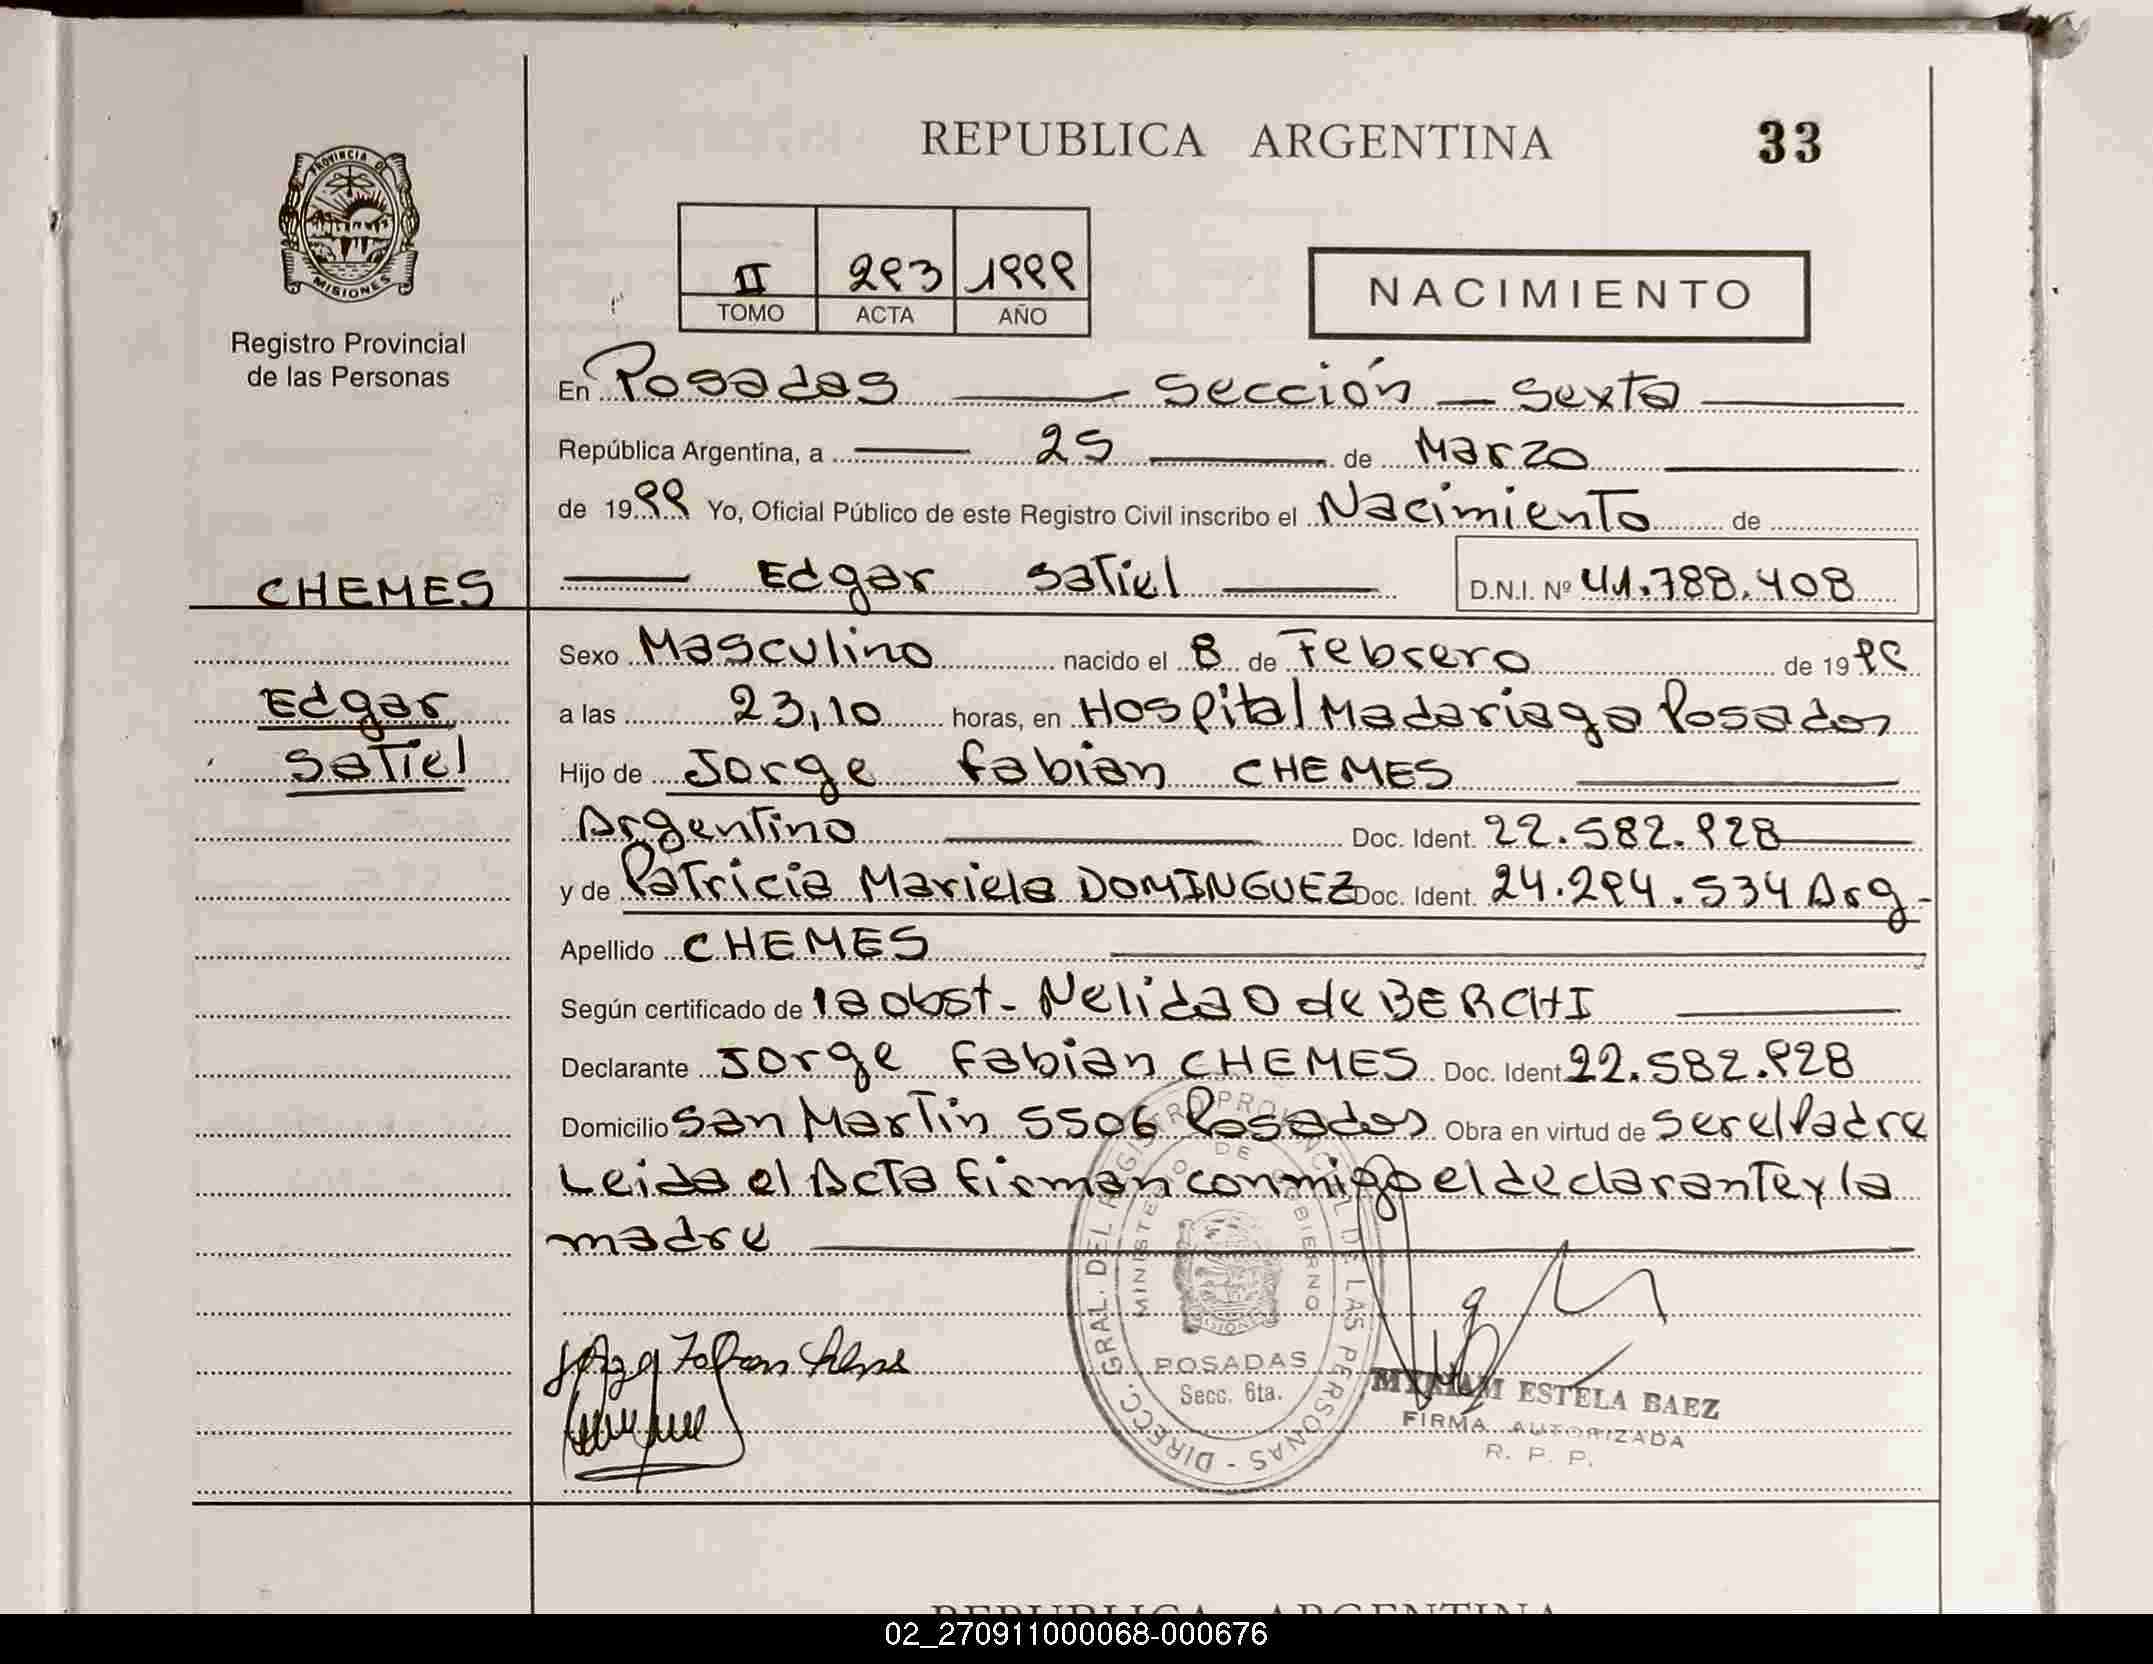 REPUBLICA ARGENTINA
33
PROVINCIA DE
MISIONES
Registro Provincial
de las Personas
II 293 1999
TOMO ACTA AÑO
NACIMIENTO
En Posadas Sección Sexta
República Argentina, a 25 de Marzo
de 1999 Yo, Oficial Público de este Registro Civil inscribo el Nacimiento de
CHEMES
Edgar Satiel D.N.I. Nº 41.788.408
Sexo Masculino nacido el 8 de Febrero de 1999
Edgar
a las 23,10 horas, en Hospital Madariaga Posadas
Satiel
Hijo de Jorge Fabian CHEMES
Argentino Doc. Ident. 22.582.928
y de Patricia Mariela DOMINGUEZ Doc. Ident. 24.294.534 Arg-
Apellido CHEMES
Según certificado de la obst- Nelida O de BERCHI
Declarante Jorge Fabian CHEMES Doc. Ident 22.582.928
Domicilio San Martin 5506 Posadas Obra en virtud de ser el Padre
Leida el Acta firman conmigo el declarante y la
madre
DIRECC. GRAL. DEL REGISTRO PROVINCIAL DE LAS PERSONAS -
MINISTERIO DE GOBIERNO
MISIONES
POSADAS
Secc. 6ta.
Jorge Fabian Chemes
MYRIAM ESTELA BAEZ
FIRMA AUTORIZADA
R. P. P.
REPUBLICA ARGENTINA
02_270911000068-000676